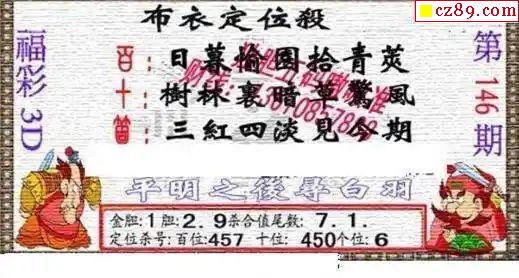 cz89.com
布衣定位殺
福彩3D
第146期
百：日暮愉園拾青莢
十：樹林裏暗草驚風
個：三紅四淡見今期
平明之後尋白羽
金胆:1胆:2.9杀合值尾数:7.1.
定位杀号:百位:457 十位:450个位:6